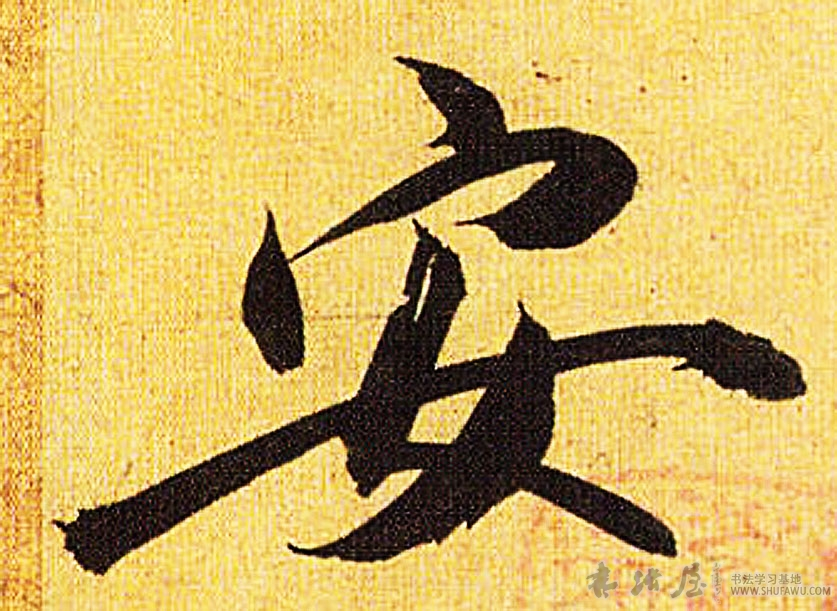 安
书法屋
书法学习基地
WWW.SHUFAWU.COM